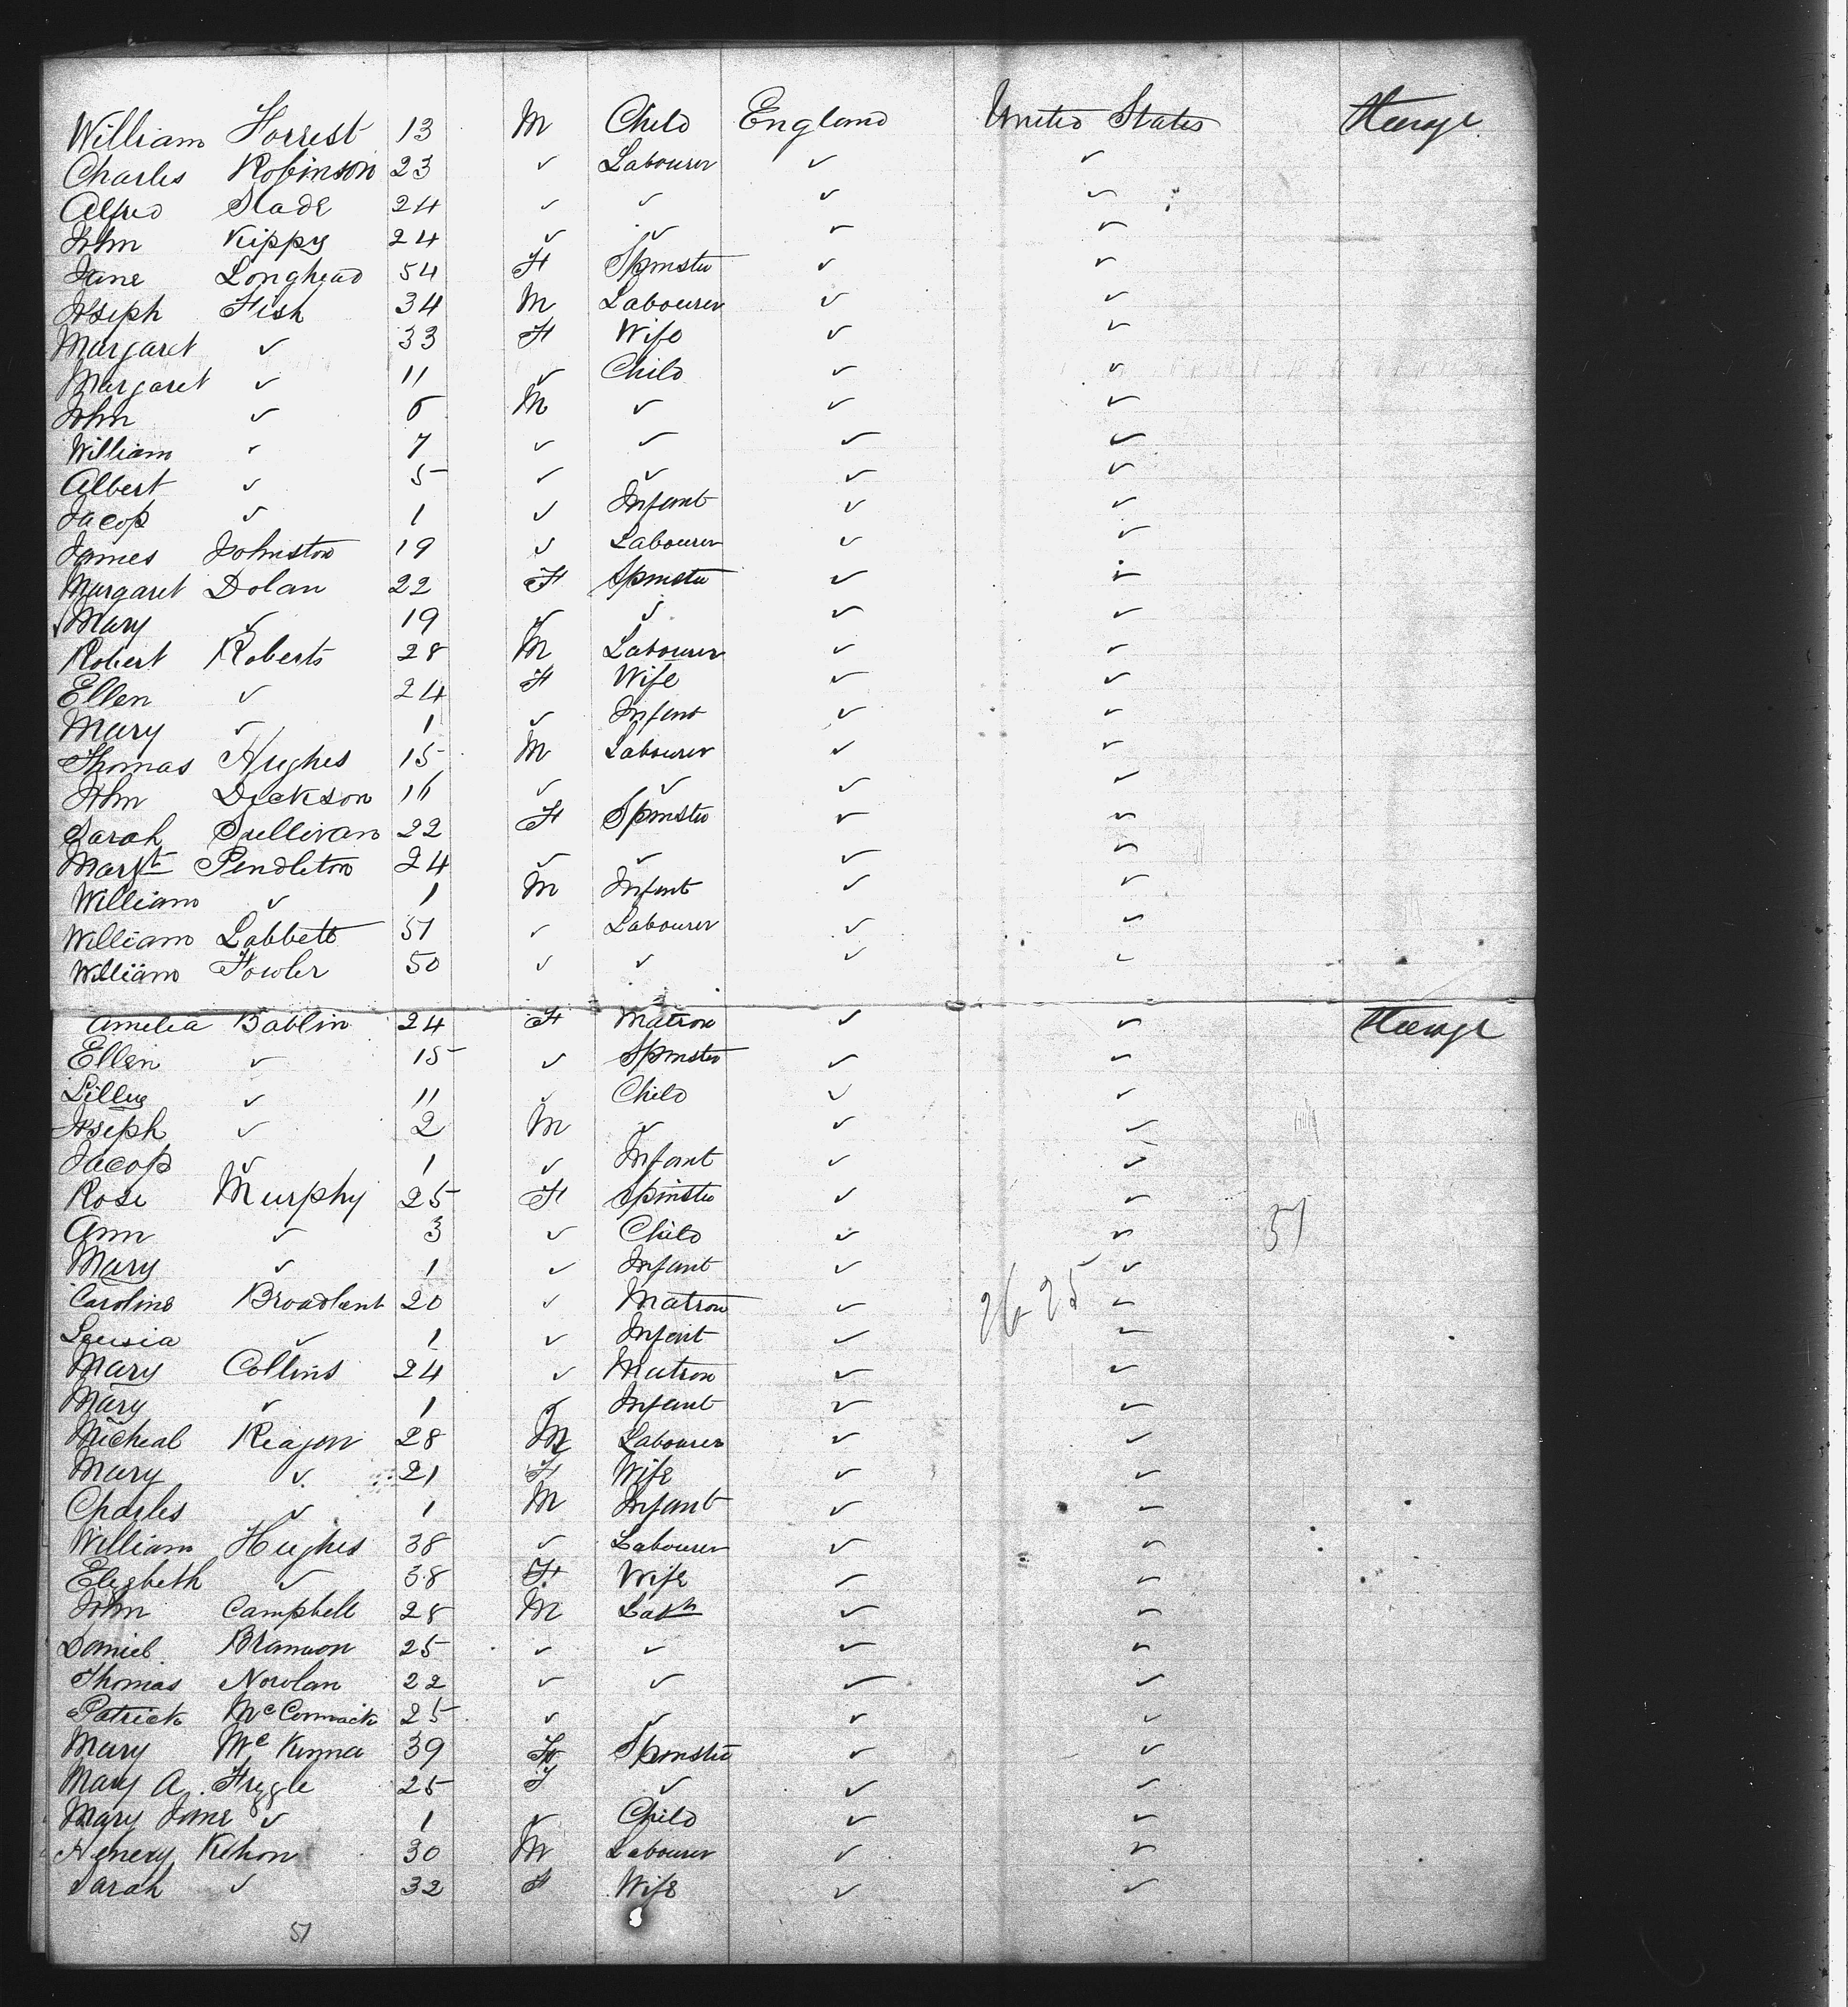 William Forrest 13 M Child England United States Steerage
Charles Robinson 23 ✓ Labourer ✓ ✓
Alfred Slade 24 ✓ ✓ ✓ ✓
John Kippy 24 ✓ ✓ ✓ ✓
Jane Longhead 54 F Spinster ✓ ✓
Joseph Fish 34 M Labourer ✓ ✓
Margaret ✓ 33 F Wife ✓ ✓
Margaret ✓ 11 ✓ Child ✓ ✓
John ✓ M ✓ ✓ ✓
William ✓ 7 ✓ ✓ ✓ ✓
Albert ✓ 5 ✓ ✓ ✓ ✓
Jacob ✓ 1 ✓ Infant ✓ ✓
James Johnston 19 ✓ Labourer ✓ ✓
Margaret Dolan 22 F Spinster ✓ ✓
Mary ✓ 19 ✓ ✓ ✓ ✓
Robert Roberts 28 M Labourer ✓ ✓
Ellen ✓ 24 F Wife ✓ ✓
Mary ✓ 1 ✓ Infant ✓ ✓
Thomas Hughes 15 M Labourer ✓ ✓
John Dickson 16 ✓ ✓ ✓ ✓
Sarah Sullivan 22 F Spinster ✓ ✓
Margt Pendleton 24 ✓ ✓ ✓ ✓
William ✓ 1 M Infant ✓ ✓
William Labbett 51 ✓ Labourer ✓ ✓
William Fowler 50 ✓ ✓ ✓ ✓
Amelia Bablin 24 F Matron ✓ ✓ Steerage
Ellen ✓ 15 ✓ Spinster ✓ ✓
Lilley ✓ 11 ✓ Child ✓ ✓
Joseph ✓ 2 M ✓ ✓ ✓
Jacob ✓ 1 ✓ Infant ✓ ✓
Rose Murphy 25 F Spinster ✓ ✓
Ann ✓ 3 ✓ Child ✓ ✓ 51
Mary ✓ 1 ✓ Infant ✓ ✓
Caroline Broadbent 20 ✓ Matron ✓ 26 25 ✓
Lousia ✓ 1 ✓ Infant ✓ ✓
Mary Collins 24 ✓ Matron ✓ ✓
Mary ✓ 1 ✓ Infant ✓ ✓
Micheal Reagon 28 M Labourer ✓ ✓
Mary ✓ 21 F Wife ✓ ✓
Charles ✓ 1 M Infant ✓ ✓
William Hughes 38 ✓ Labourer ✓ ✓
Elizabeth ✓ 38 F Wife ✓ ✓
John Campbell 28 M Labr ✓ ✓
Daniel Brannon 25 ✓ ✓ ✓ ✓
Thomas Nowlan 22 ✓ ✓ ✓ ✓
Patrick McCormack 25 ✓ ✓ ✓ ✓
Mary McKinna 39 F Spinster ✓ ✓
Mary A. 25 F ✓ ✓ ✓
Mary Jane ✓ 1 ✓ Child ✓ ✓
Henery Kehon 30 M Labourer ✓ ✓
Sarah ✓ 32 F Wife ✓ ✓
51